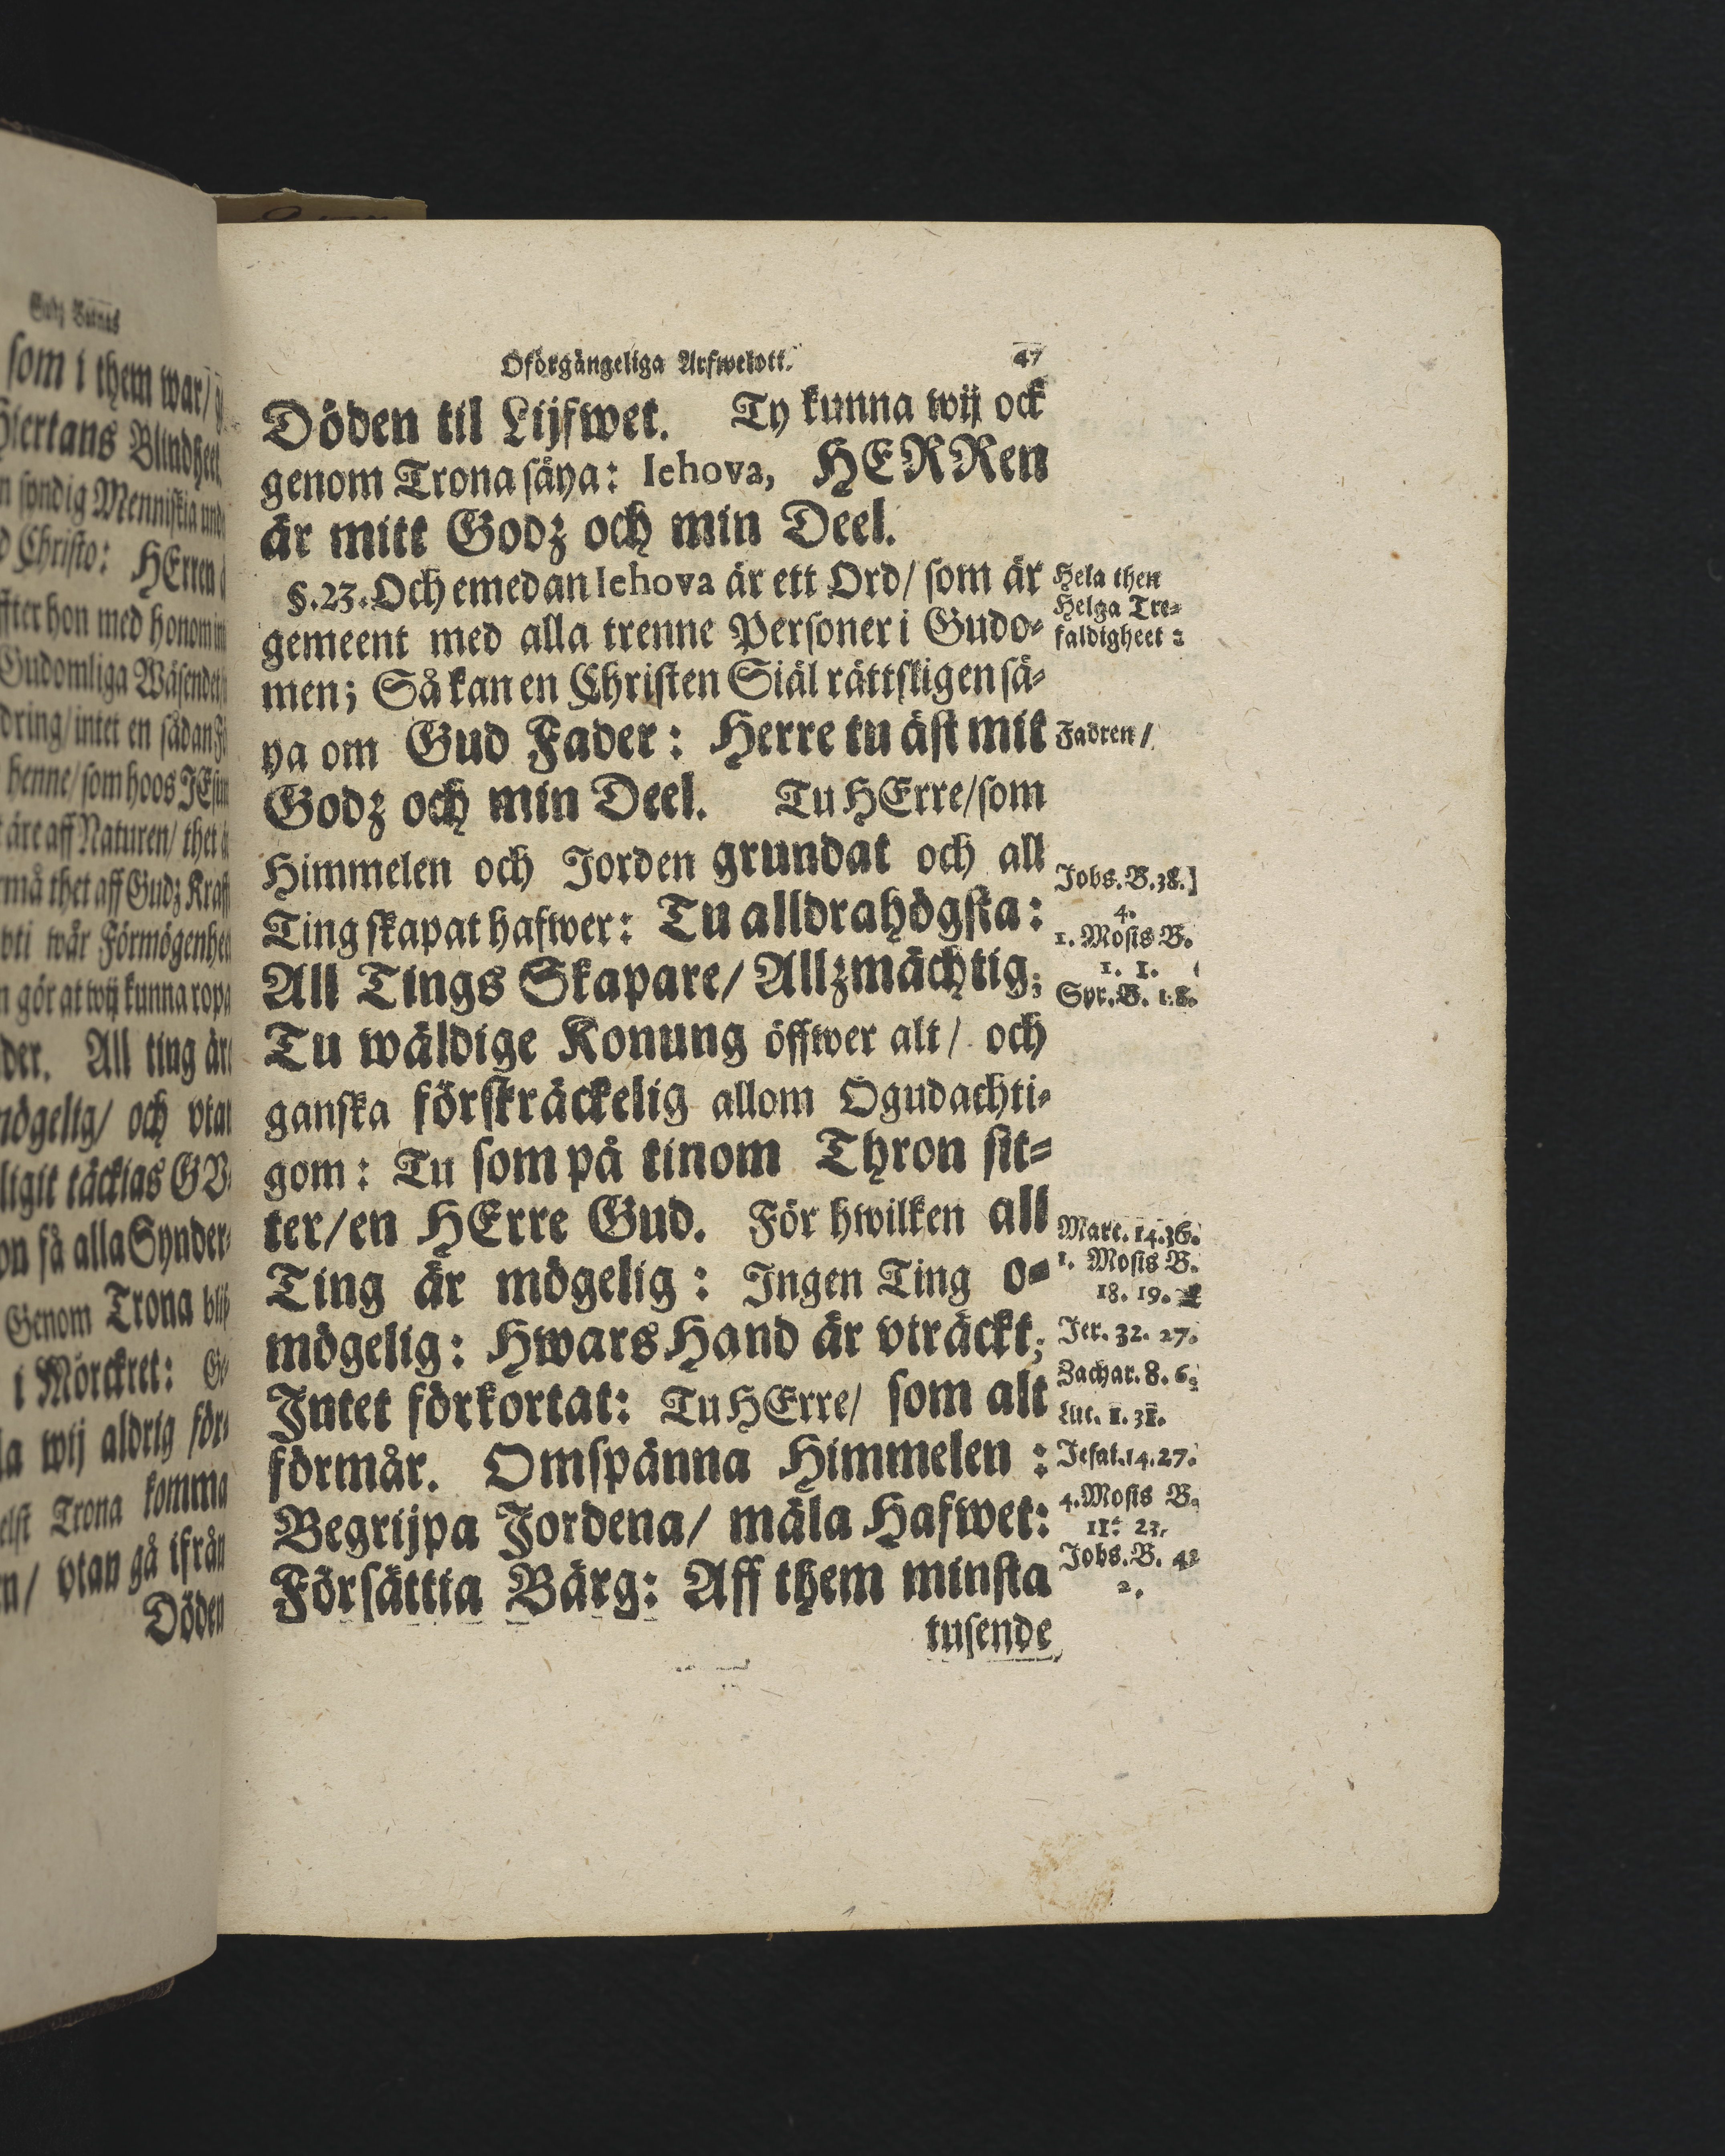 Gudz Barnas
som i them war/
Hiertans Blindheet
n syndig Menniskia
d Christo: HErren
ffter hon med honom
Gudomliga Wäsendet
dring/ intet en sådan
henne/ som hoos JEsum
äre aff Naturen/ thet
rmå thet aff Gudz Krafft
vti wår Förmögenheet
n gör at wij kunna ropa
der. All ting är
mögelig/ och vtan
ligit täckias GV
on få alla Synder
Genom Trona
i Mörckret:
la wij aldrig för
elst Trona komma
n/ vtan gå ifrån
Döden
Oförgängeliga Arfwelott. 47
Döden til Lijfwet. Ty kunna wij ock
genom Trona säya: Iehova, HERRen
är mitt Godz och min Deel.
§.23. Och emedan Iehova är ett Ord/ som är
gemeent med alla trenne Personer i Gudo-
men; Så kan en Christen Siäl rättsligen sä-
ya om Gud Fader: Herre tu äst mit
Godz och min Deel. Tu HErre/ som
Himmelen och Jorden grundat och all
Ting skapat hafwer: Tu alldrahögsta:
All Tings Skapare/ Allzmächtig;
Tu wäldige Konung öffwer alt/ och
ganska förskräckelig allom Ogudachti-
gom: Tu som på tinom Thron sit-
ter/ en HErre Gud. För hwilken all
Ting är mögelig: Ingen Ting o-
mögelig: Hwars Hand är vträckt;
Intet förkortat: Tu HErre/ som alt
förmår. Omspänna Himmelen :
Begrijpa Jordena/ mäla Hafwet:
Försättia Bärg: Aff them minsta
tusende
Hela then
Helga Tre-
faldigheet :
Fadren/
Jobs. B. 38.]
4.
1. Mosis B.
1. 1.
Syr. B. 1.8.
Marc. 14.36.
1. Mosis B.
18. 19.
Jer. 32. 27.
Zachar. 8. 6.
Luc. 1. 31.
Jesai. 14. 27.
4. Mosis B.
11: 23.
Jobs. B. 42
2.